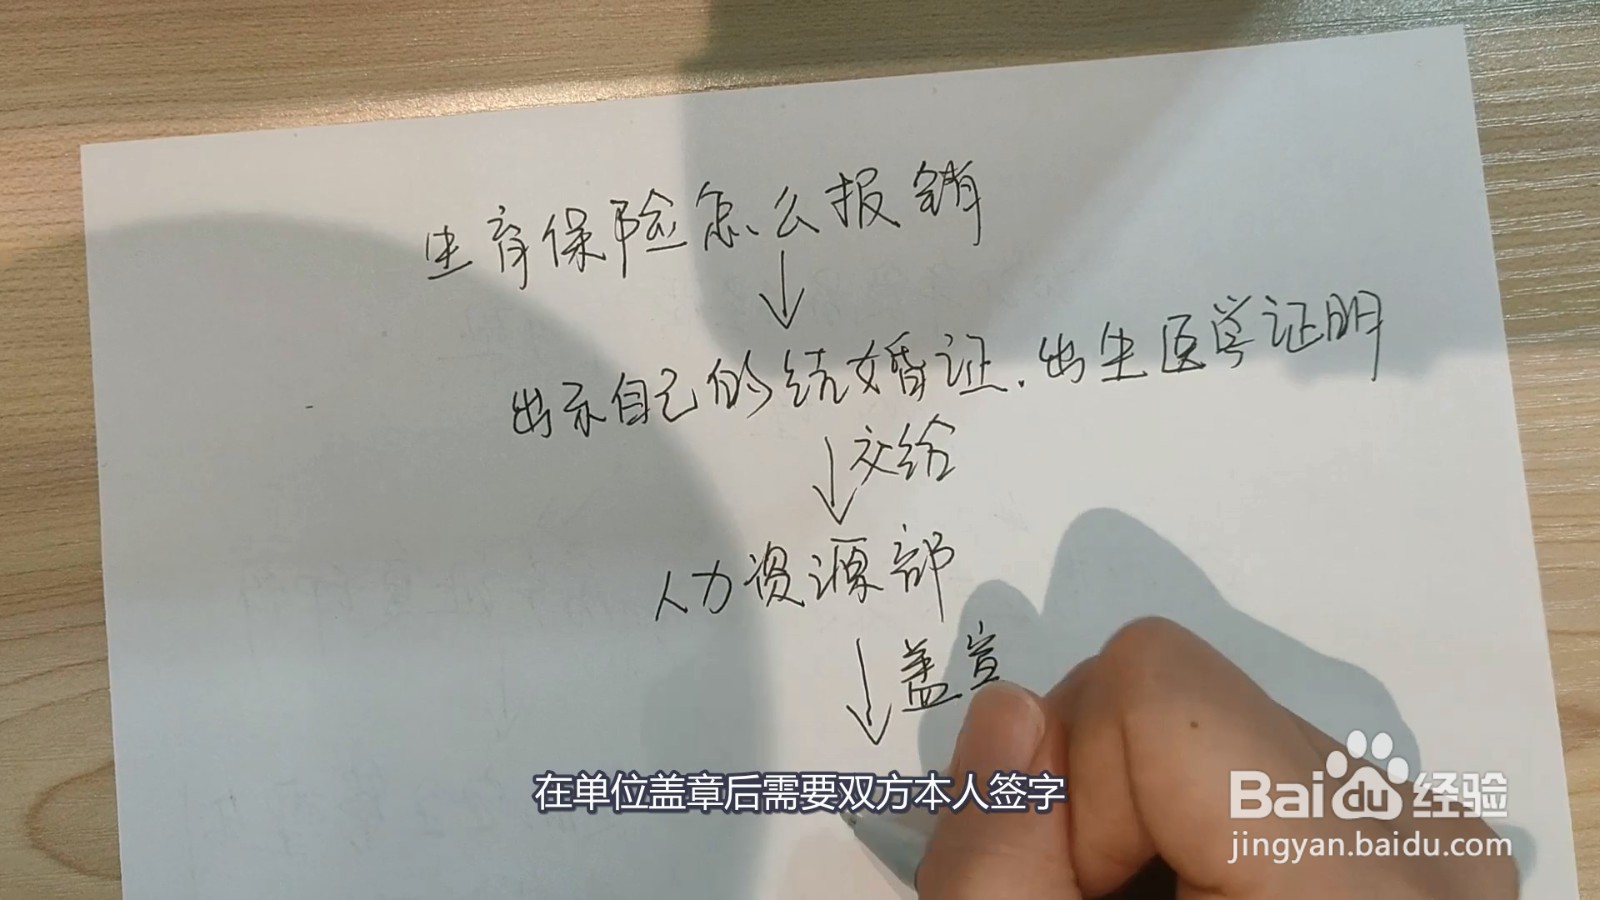 生育保险怎么报销
出示自己的结婚证.出生医学证明
交给
人力资源部
盖章
在单位盖章后需要双方本人签字
Baidu经验
jingyan.baidu.com